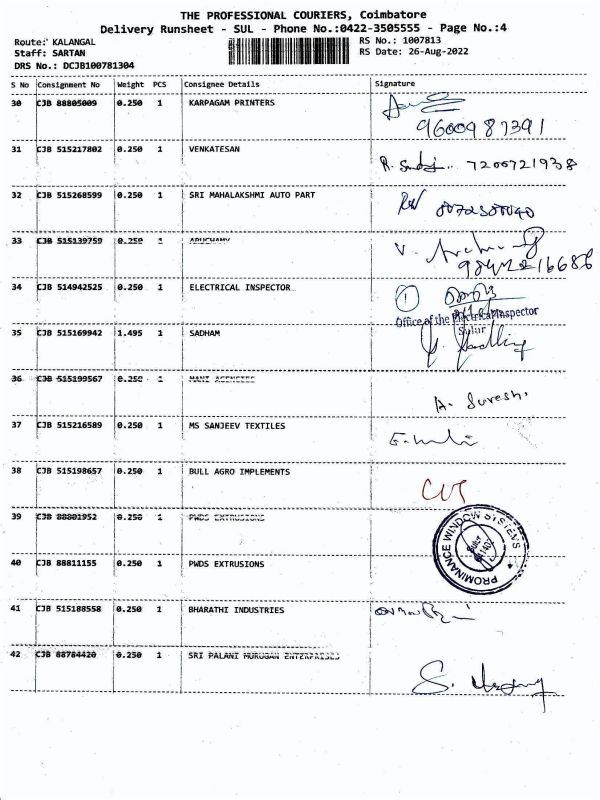 THE PROFESSIONAL COURIERS, Coimbatore
Delivery Runsheet - SUL - Phone No.:0422-3505555 - Page No.:4
Route: KALANGAL
RS No.: 1007813
Staff: SARTAN
RS Date: 26-Aug-2022
DRS No.: DCJB100781304
S No Consignment No Weight PCS Consignee Details Signature
30 CJB 88805009 0.250 1 KARPAGAM PRINTERS
9600987391
31 CJB 515217802 0.250 1 VENKATESAN
7200721938
32 CJB 515268599 0.250 1 SRI MAHALAKSHMI AUTO PART
33 CJB 515139759 0.250 1 ARUCHAMY
V.
34 CJB 514942525 0.250 1 ELECTRICAL INSPECTOR
1
Office of the Electrical Inspector
Sulur
35 CJB 515169942 1.495 1 SADHAM
36 CJB 515199567 0.250 1 MANI AGENCEES
A. Suresh.
37 CJB 515216589 0.250 1 MS SANJEEV TEXTILES
38 CJB 515198657 0.250 1 BULL AGRO IMPLEMENTS
39 CJB 88801952 0.250 1 PWDS EXTRUSIONS
PROMINANCE WINDOW SYSTEMS
40 CJB 88811155 0.250 1 PWDS EXTRUSIONS
41 CJB 515188558 0.250 1 BHARATHI INDUSTRIES
42 CJB 88784420 0.250 1 SRI PALANI MURUGAN ENTERPRISES
S.